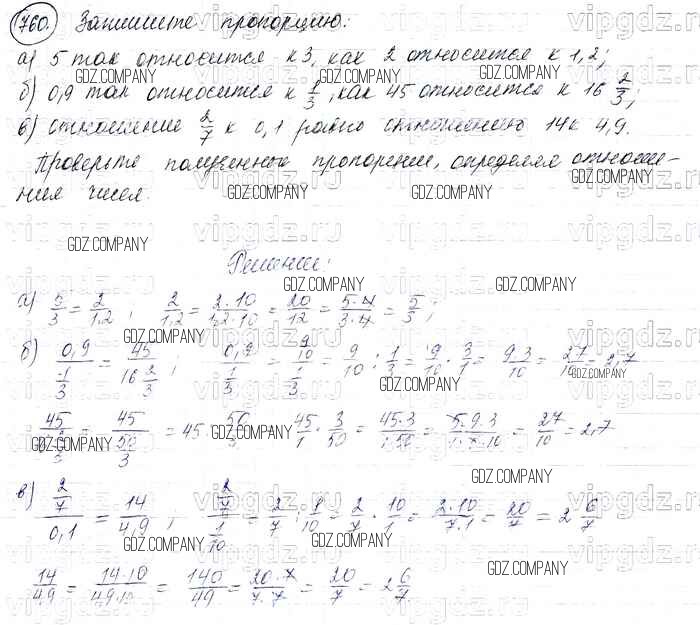 760. Запишите пропорцию:
а) 5 так относится к 3, как 2 относится к 1,2;
б) 0,9 так относится к 1/3, как 45 относится к 16 2/3;
в) отношение 2/7 к 0,1 равно отношению 14 к 4,9.
Проверьте полученные пропорции, определяя отноше-
ния чисел.
Решение:
а) 5/3 = 2/1,2 ; 2/1,2 = 2·10/1,2·10 = 20/12 = 5·4/3·4 = 5/3 ;
б) 0,9/(1/3) = 45/(16 2/3) ; 0,9/(1/3) = (9/10)/(1/3) = 9/10 : 1/3 = 9/10 · 3/1 = 9·3/10 = 27/10 = 2,7
45/(16 2/3) = 45/(50/3) = 45 : 50/3 = 45/1 · 3/50 = 45·3/1·50 = 5·9·3/1·5·10 = 27/10 = 2,7
в) (2/7)/0,1 = 14/4,9 ; (2/7)/(1/10) = 2/7 : 1/10 = 2/7 · 10/1 = 2·10/7·1 = 20/7 = 2 6/7
14/4,9 = 14·10/4,9·10 = 140/49 = 20·7/7·7 = 20/7 = 2 6/7
vipgdz.ru
GDZ.COMPANY